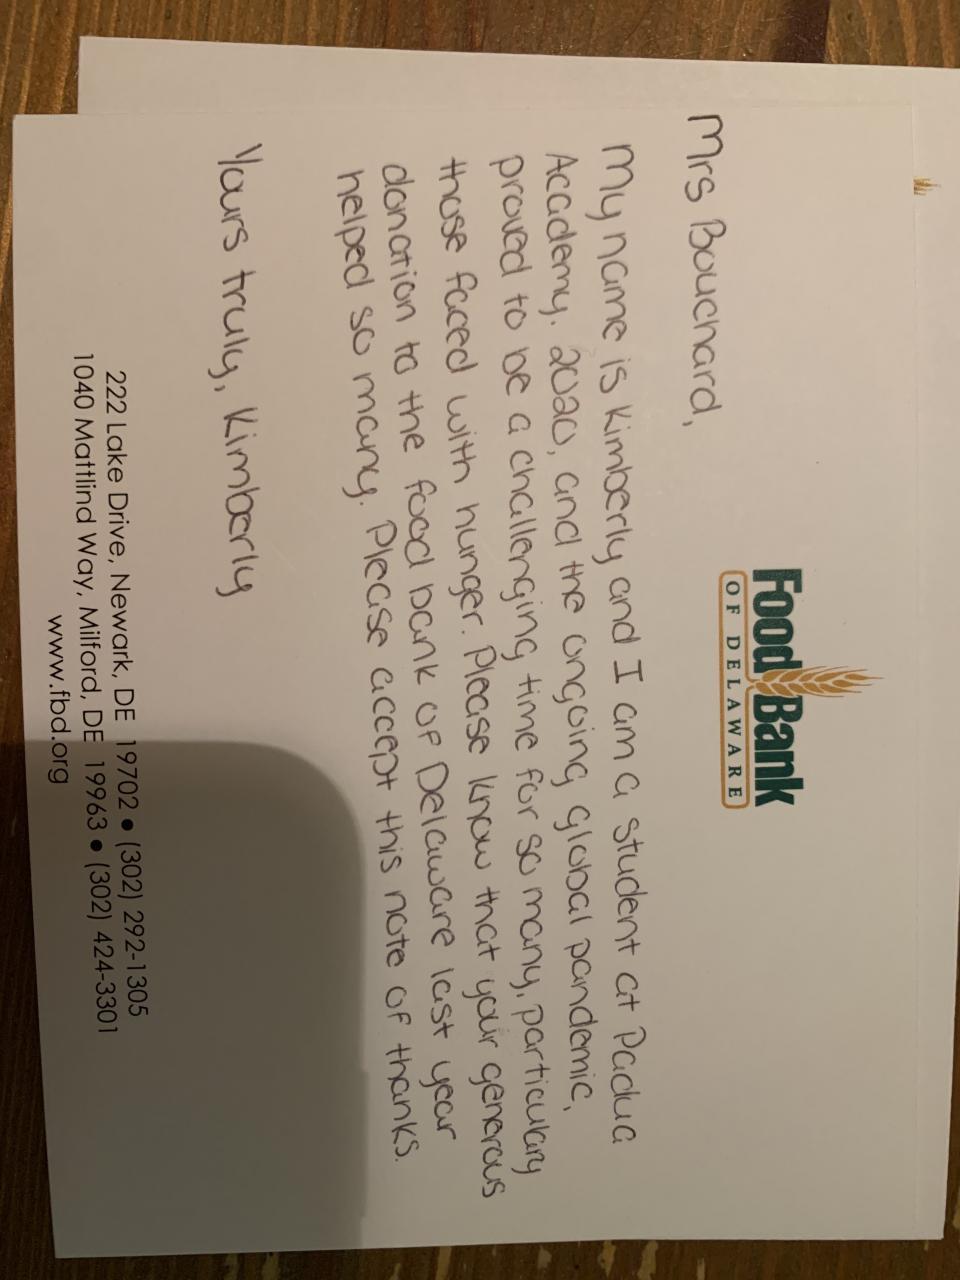 Food Bank
OF DELAWARE
Mrs Bouchard,
My name is Kimberly and I am a student at Padua
Academy. 2020, and the ongoing global pandemic,
proved to be a challenging time for so many, particulary
those faced with hunger. Please know that your generous
donation to the food bank of Delaware last year
helped so many. Please accept this note of thanks.
Yours truly, Kimberly
222 Lake Drive, Newark, DE 19702 • (302) 292-1305
1040 Mattlind Way, Milford, DE 19963 • (302) 424-3301
www.fbd.org